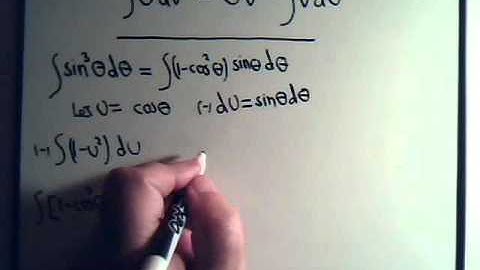 ∫sin³θdθ = ∫(1-cos²θ) sinθdθ
Let U = cosθ (-) dU = sinθdθ
(-) ∫(1-U²) dU
∫[1-cos²